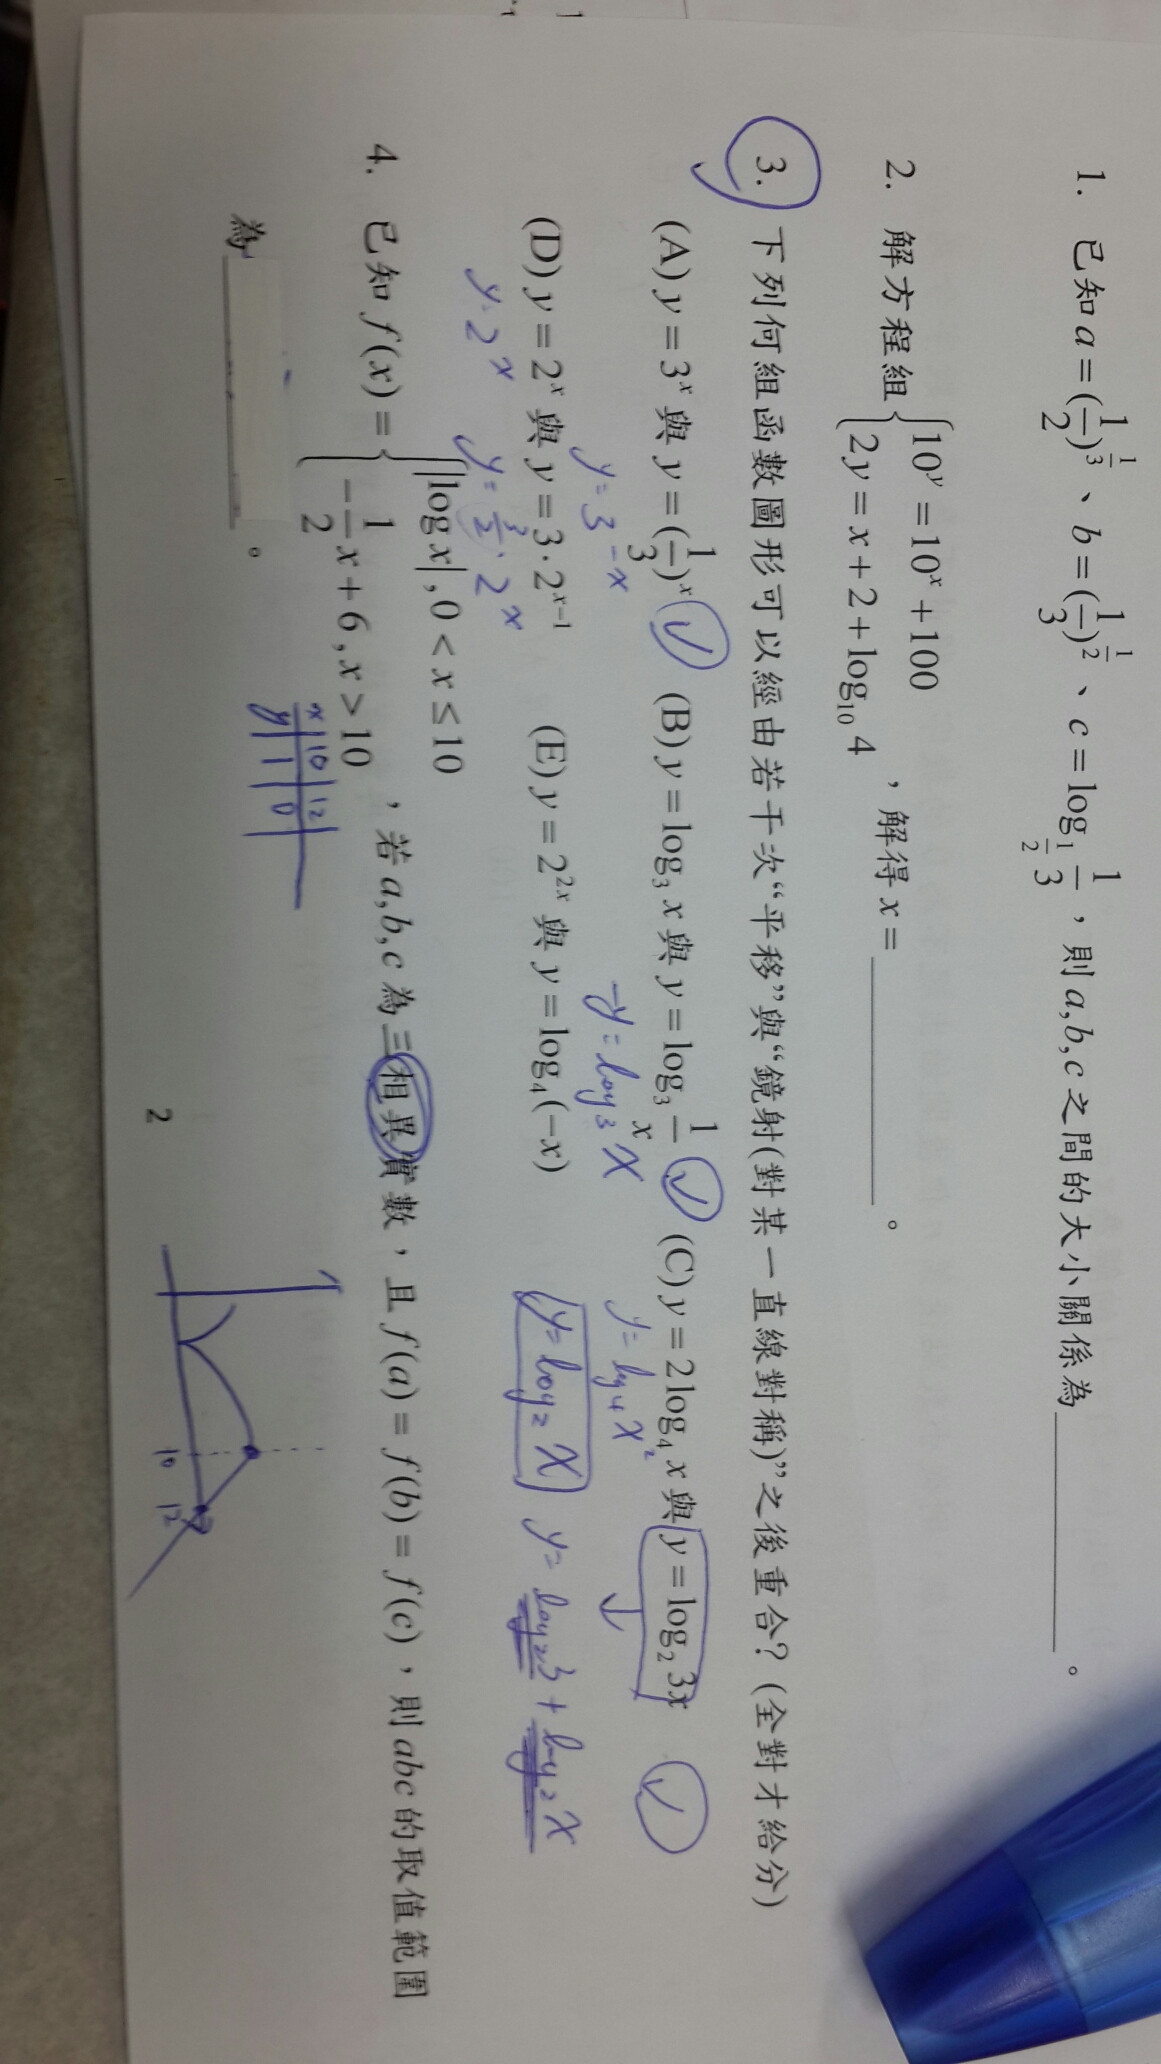 1. 已知 a = (1/2)^(1/3)、b = (1/3)^(1/2)、c = log_(1/2) 1/3，則 a,b,c 之間的大小關係為________。
2. 解方程組 { 10^y = 10^x + 100
2y = x + 2 + log₁₀ 4 ，解得 x = ________。
3. 下列何組函數圖形可以經由若干次“平移”與“鏡射(對某一直線對稱)”之後重合? (全對才給分)
(A) y = 3^x 與 y = (1/3)^x ✓ (B) y = log₃ x 與 y = log₃ 1/x ✓ (C) y = 2log₄ x 與 y = log₂ 3x ✓
y = 3^-x -y = log₃ x y = log₄ x² ↓
(D) y = 2^x 與 y = 3·2^(x-1) (E) y = 2^(2x) 與 y = log₄(-x) y = log₂ x y = log₂ 3 + log₂ x
y = 2^x y = 3/2 · 2^x
4. 已知 f(x) = { |log x|, 0 < x ≤ 10
-1/2 x + 6, x > 10 ，若 a,b,c 為三相異實數，且 f(a) = f(b) = f(c)，則 abc 的取值範圍
為________。
x | 10 | 12
y | 1 | 0
10 12
2